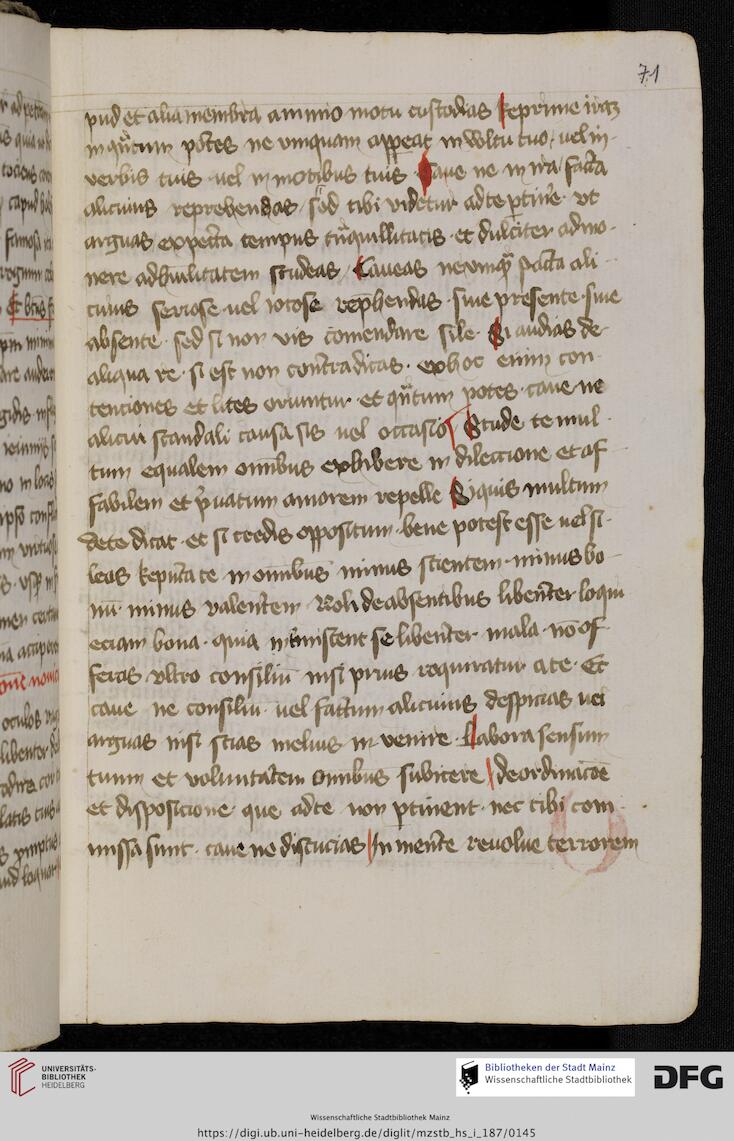 71
pud et alia membra a nimio motu custodias Reprime iram
in quantum potes ne vnquam appareat in voltu tuo vel in
verbis tuis vel in motibus tuis Caue ne in ira facta
alicuius reprehendas sed tibi videtur ad te ptinere vt
arguas expecta tempus tranquillitatis et dulciter admo
nere ad humilitatem studeas Caueas ne vmquam facta ali
cuius seriose vel iocose reprehendas siue presente siue
absente sed si non vis comendare sile Si audias de
aliqua re si est non contradicas ex hoc enim con
tenciones et lites oriuntur et quantum potes caue ne
alicui scandali causa sis vel occasio Stude te mul
tum equalem omnibus exhibere in dilectione et af
fabilem et priuatum amorem repelle Si quis multum
de te dicat et si credis oppositum bene potest esse vel si
leas Reputa te in omnibus minus scientem minus bo
num minus valentem Noli de absentibus libenter loqui
eciam bona quia inmiscent se libenter mala non of
feras vltro consilium nisi prius requiratur a te Et
caue ne consilium vel factum alicuius despicias vel
arguas nisi scias melius in venire Labora sensum
tuum et voluntatem omnibus subicere de ordinacione
et disposicione que ad te non ptinent nec tibi com
missa sunt caue ne discucias In mente reuolue terrorem
UNIVERSITÄTS-
BIBLIOTHEK
HEIDELBERG
Bibliotheken der Stadt Mainz
Wissenschaftliche Stadtbibliothek
DFG
Wissenschaftliche Stadtbibliothek Mainz
https://digi.ub.uni-heidelberg.de/diglit/mzstb_hs_i_187/0145